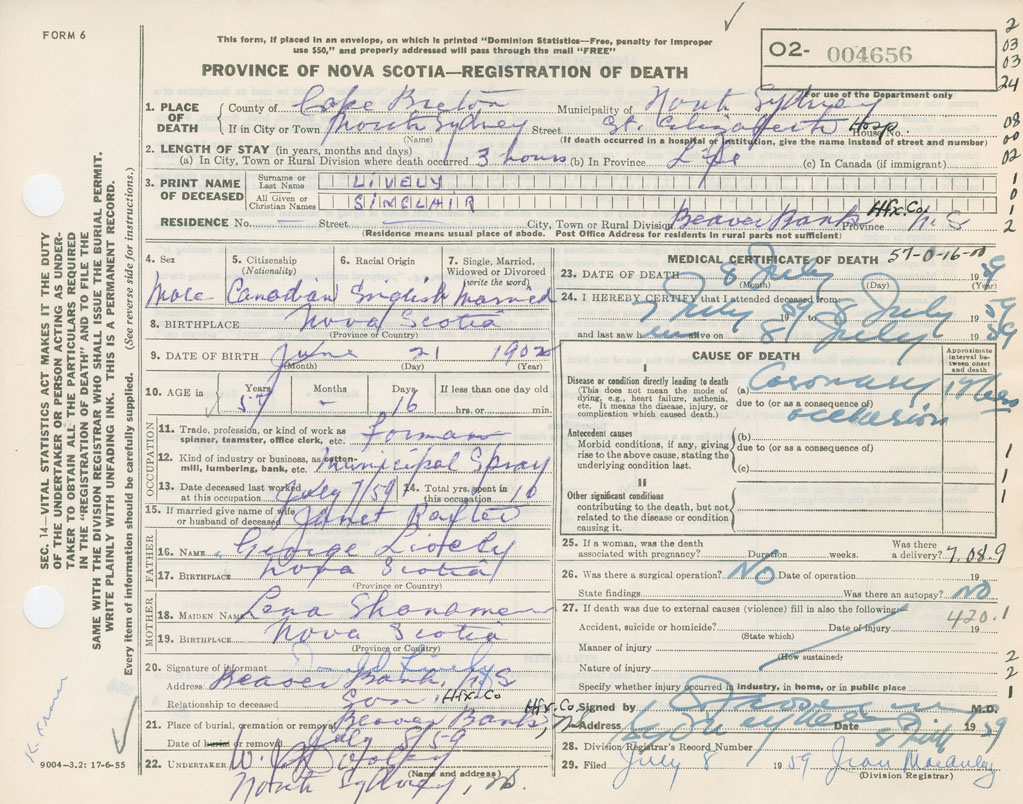 FORM 6
This form, if placed in an envelope, on which is printed "Dominion Statistics—Free, penalty for improper
use $50," and properly addressed will pass through the mail "FREE"
PROVINCE OF NOVA SCOTIA—REGISTRATION OF DEATH
O2- 004656
For use of the Department only
2
03
03
24
08
00
02
1
0
1
2
1. PLACE OF DEATH County of Cape Breton Municipality of North Sydney
If in City or Town North Sydney Street St. Elizabeth Hosp House No.
(Name) (If death occurred in a hospital or institution, give the name instead of street and number)
2. LENGTH OF STAY (in years, months and days)
(a) In City, Town or Rural Division where death occurred 3 hours (b) In Province Life (c) In Canada (if immigrant)
3. PRINT NAME OF DECEASED Surname or Last Name LIVELY
All Given or Christian Names SINCLAIR
RESIDENCE No. — Street — City, Town or Rural Division Beaver Bank Hfx. Co Province N.S
(Residence means usual place of abode. Post Office Address for residents in rural parts not sufficient)
4. Sex 5. Citizenship (Nationality) 6. Racial Origin 7. Single, Married, Widowed or Divorced (write the word)
Male Canadian English Married
8. BIRTHPLACE Nova Scotia
(Province or Country)
9. DATE OF BIRTH June 21 1902
(Month) (Day) (Year)
10. AGE in Years 57 Months – Days 16 If less than one day old hrs. or min.
OCCUPATION
11. Trade, profession, or kind of work as spinner, teamster, office clerk, etc. Forman
12. Kind of industry or business, as cotton-mill, lumbering, bank, etc. Municipal Spray
13. Date deceased last worked at this occupation July 7/59 14. Total yrs. spent in this occupation 10
15. If married give name of wife or husband of deceased Janet Baxter
FATHER
16. NAME George Lively
17. BIRTHPLACE Nova Scotia
(Province or Country)
MOTHER
18. MAIDEN NAME Lena
19. BIRTHPLACE Nova Scotia
(Province or Country)
20. Signature of informant Lively
Address Beaver Bank, N.S
Relationship to deceased Son, Hfx. Co
21. Place of burial, cremation or removal Beaver Bank, Hfx. Co.
Date of burial or removal July 8/59
22. UNDERTAKER W. J.
(Name and address)
North Sydney, N.S.
MEDICAL CERTIFICATE OF DEATH 57-0-16-00
23. DATE OF DEATH 8 July 1959
(Month) (Day) (Year)
24. I HEREBY CERTIFY that I attended deceased from
7 July 1959 to 8 July 1959
and last saw him alive on 8 July 1959
CAUSE OF DEATH
Approximate interval between onset and death
I
Disease or condition directly leading to death
(This does not mean the mode of dying, e.g., heart failure, asthenia, etc. It means the disease, injury, or complication which caused death.)
(a) Coronary
due to (or as a consequence of)
occlusion
Antecedent causes
Morbid conditions, if any, giving rise to the above cause, stating the underlying condition last.
(b)
due to (or as a consequence of)
(c)
II
Other significant conditions
contributing to the death, but not related to the disease or condition causing it.
1
1
1
25. If a woman, was the death associated with pregnancy? Duration weeks. Was there a delivery? 7.08.9
26. Was there a surgical operation? NO Date of operation 19
State findings Was there an autopsy? NO
27. If death was due to external causes (violence) fill in also the following: 420.1
Accident, suicide or homicide? Date of injury 19
(State which)
Manner of injury
(How sustained)
Nature of injury
Specify whether injury occurred in industry, in home, or in public place
2
2
1
Signed by M.D.
Address Date 1959
28. Division Registrar's Record Number
29. Filed July 8 1959 Jean Macaulay
(Division Registrar)
SEC. 14—VITAL STATISTICS ACT MAKES IT THE DUTY
OF THE UNDERTAKER OR PERSON ACTING AS UNDER-
TAKER TO OBTAIN ALL THE PARTICULARS REQUIRED
IN THE "REGISTRATION OF DEATH" AND TO FILE THE
SAME WITH THE DIVISION REGISTRAR WHO SHALL ISSUE THE BURIAL PERMIT.
WRITE PLAINLY WITH UNFADING INK. THIS IS A PERMANENT RECORD.
Every item of information should be carefully supplied. (See reverse side for instructions.)
9004—3.2: 17-6-55